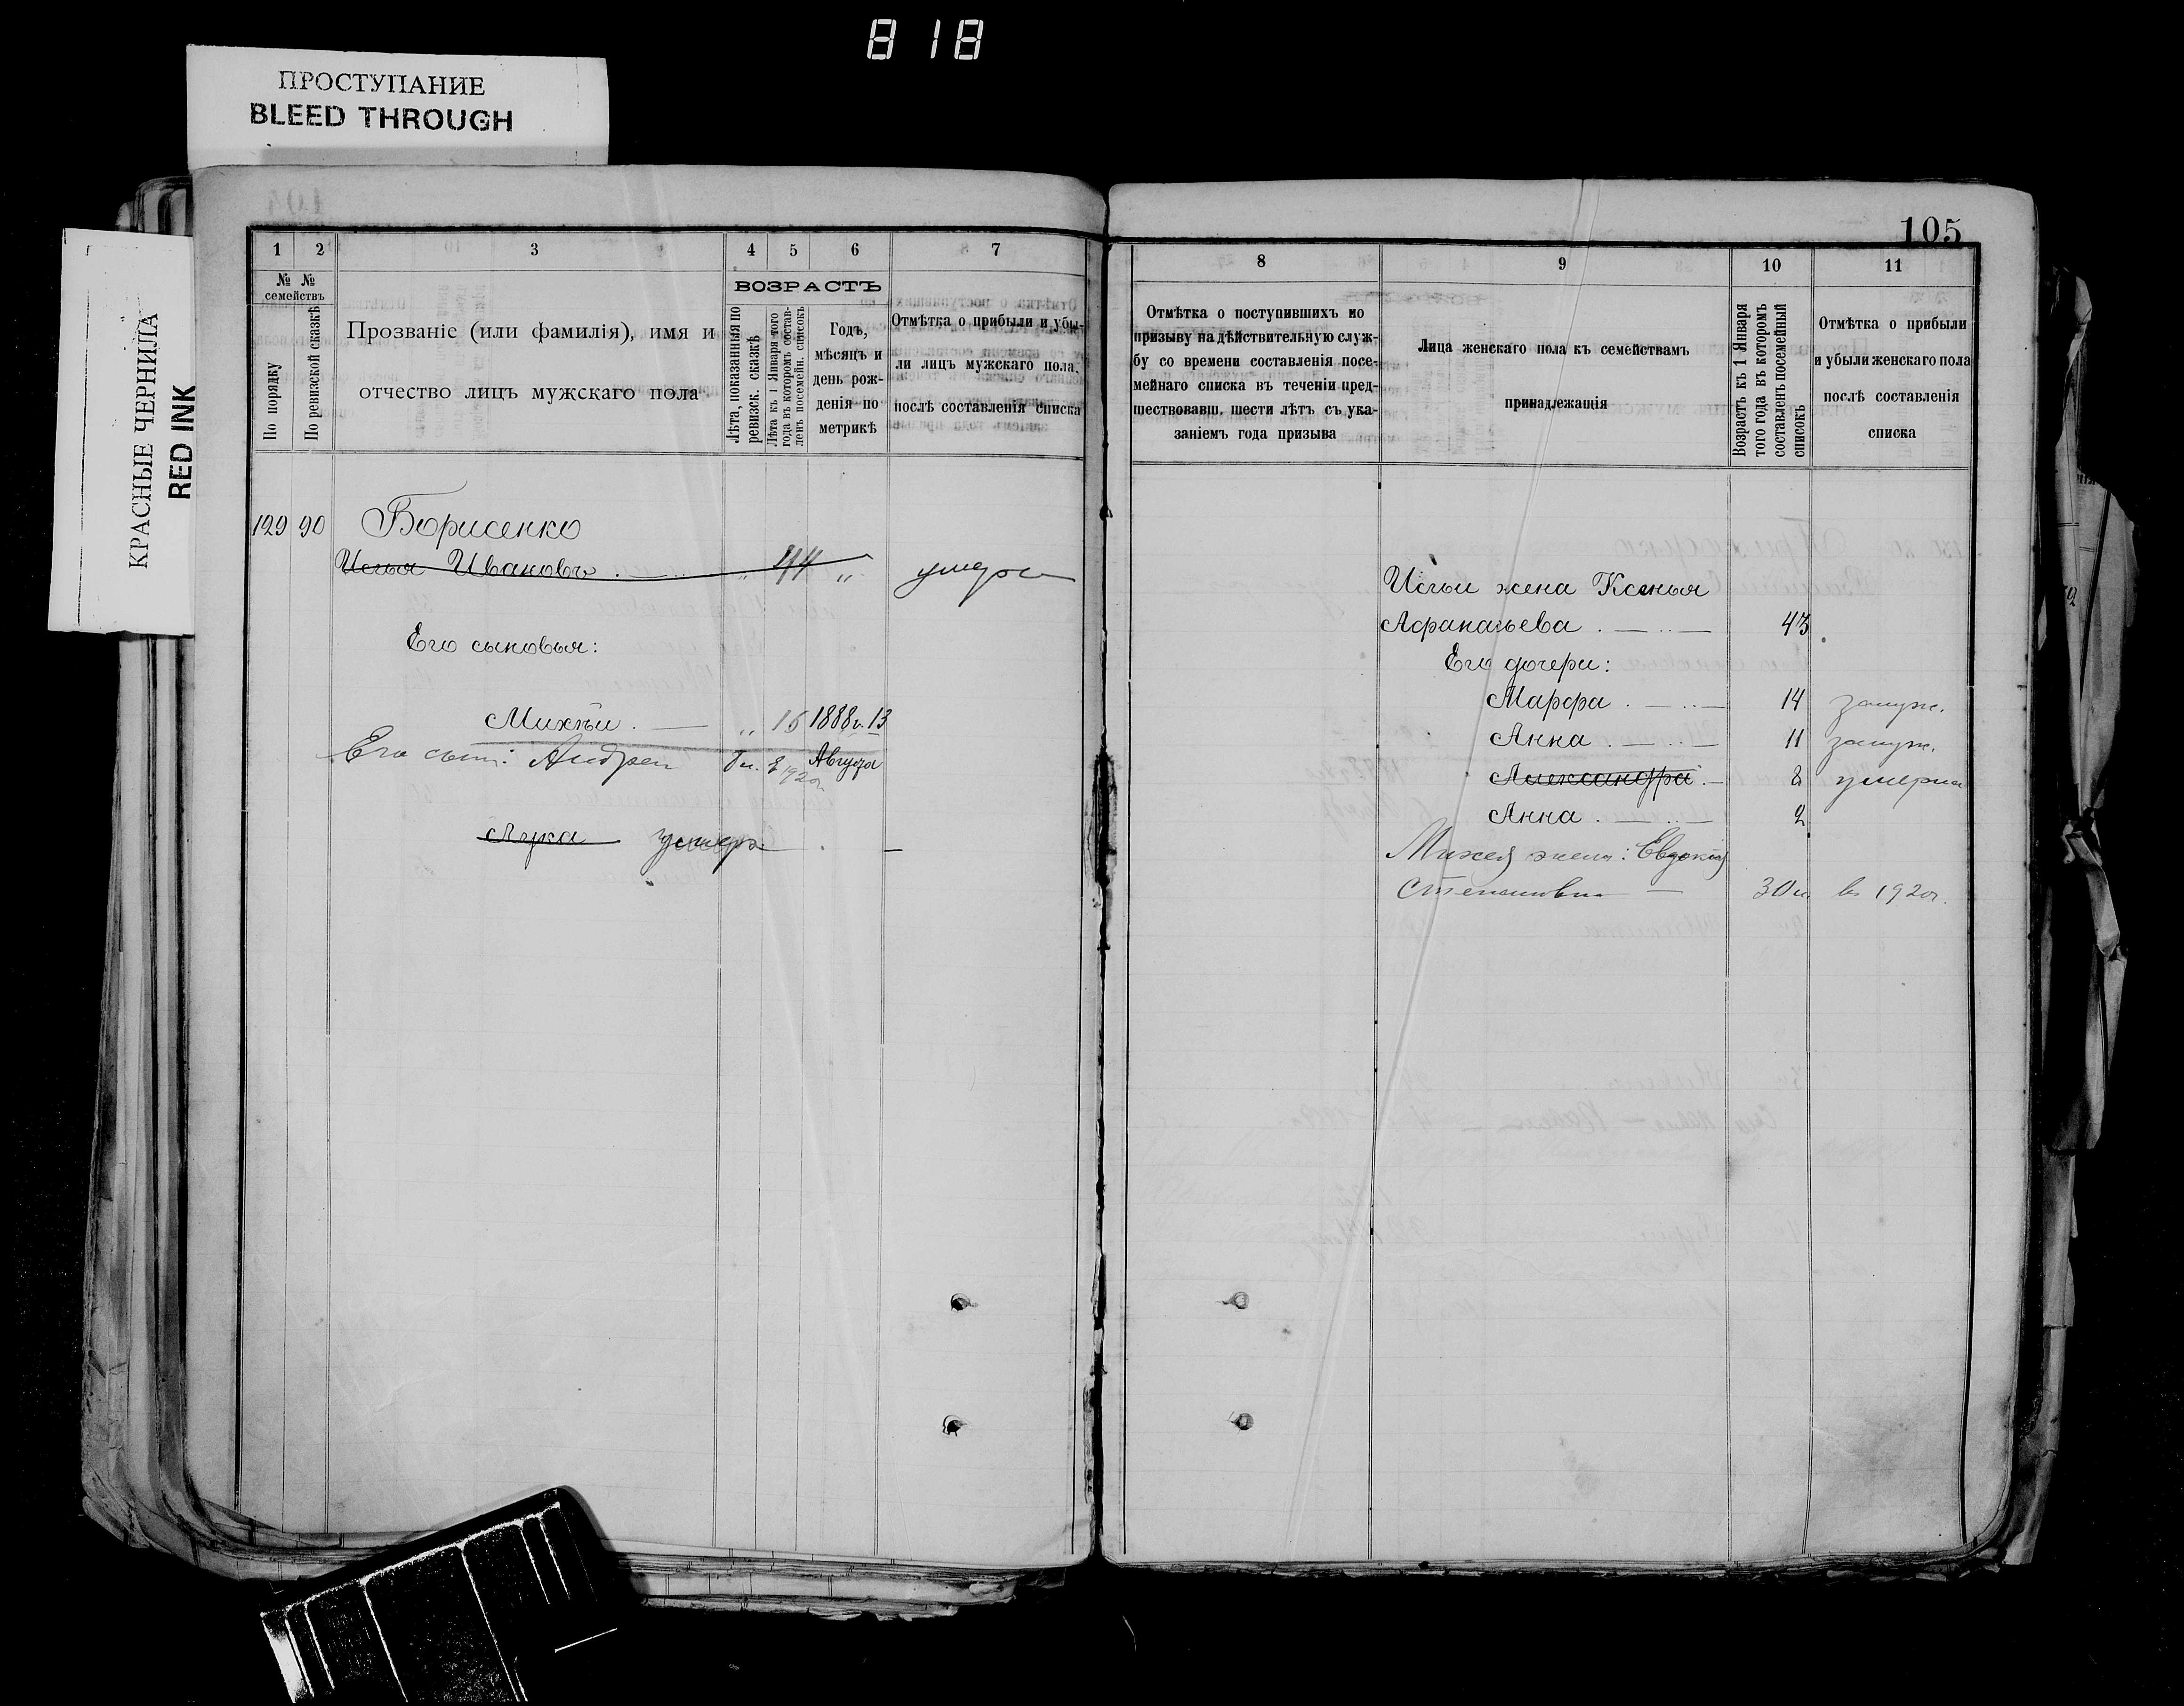 818
ПРОСТУПАНИЕ
BLEED THROUGH
КРАСНЫЕ ЧЕРНИЛА
RED INK
1 2 3 4 5 6 7
№ № семействъ
По порядку
По ревизской сказкѣ
Прозваніе (или фамилія), имя и
отчество лицъ мужскаго пола
ВОЗРАСТЪ
Лѣта, показанныя по
ревизск. сказкѣ
Лѣта къ 1 Января того
года въ которомъ состав-
ленъ посемейн. списокъ
Годъ,
мѣсяцъ и
день рож-
денія по
метрикѣ
Отмѣтка о прибыли и убы-
ли лицъ мужскаго пола,
послѣ составленія списка
129 90 Борисенко
Илья Ивановъ . — .. „ 44 „ умеръ
Его сыновья:
Михѣй . — „ 15 1888 г. 13
Августа
Его сынъ: Андрей 8 л. в 1920 г.
Лука умеръ . —
105
8 9 10 11
Отмѣтка о поступившихъ по
призыву на дѣйствительную служ-
бу со времени составленія посе-
мейнаго списка въ теченіи пред-
шествовавш. шести лѣтъ съ ука-
заніемъ года призыва
Лица женскаго пола къ семействамъ
принадлежащія
Возрастъ къ 1 Января
того года въ которомъ
составленъ посемейный
списокъ
Отмѣтка о прибыли
и убыли женскаго пола
послѣ составленія
списка
Ильи жена Ксенья
Афанасьева . — .. — 43
Его дочери:
Марфа . — .. — 14 замуж.
Анна . — .. — 11 замуж.
Александра . — 8 умерла
Анна . — .. — 2
Михея жена: Евдокия
Степановна — 30 л. в 1920 г.